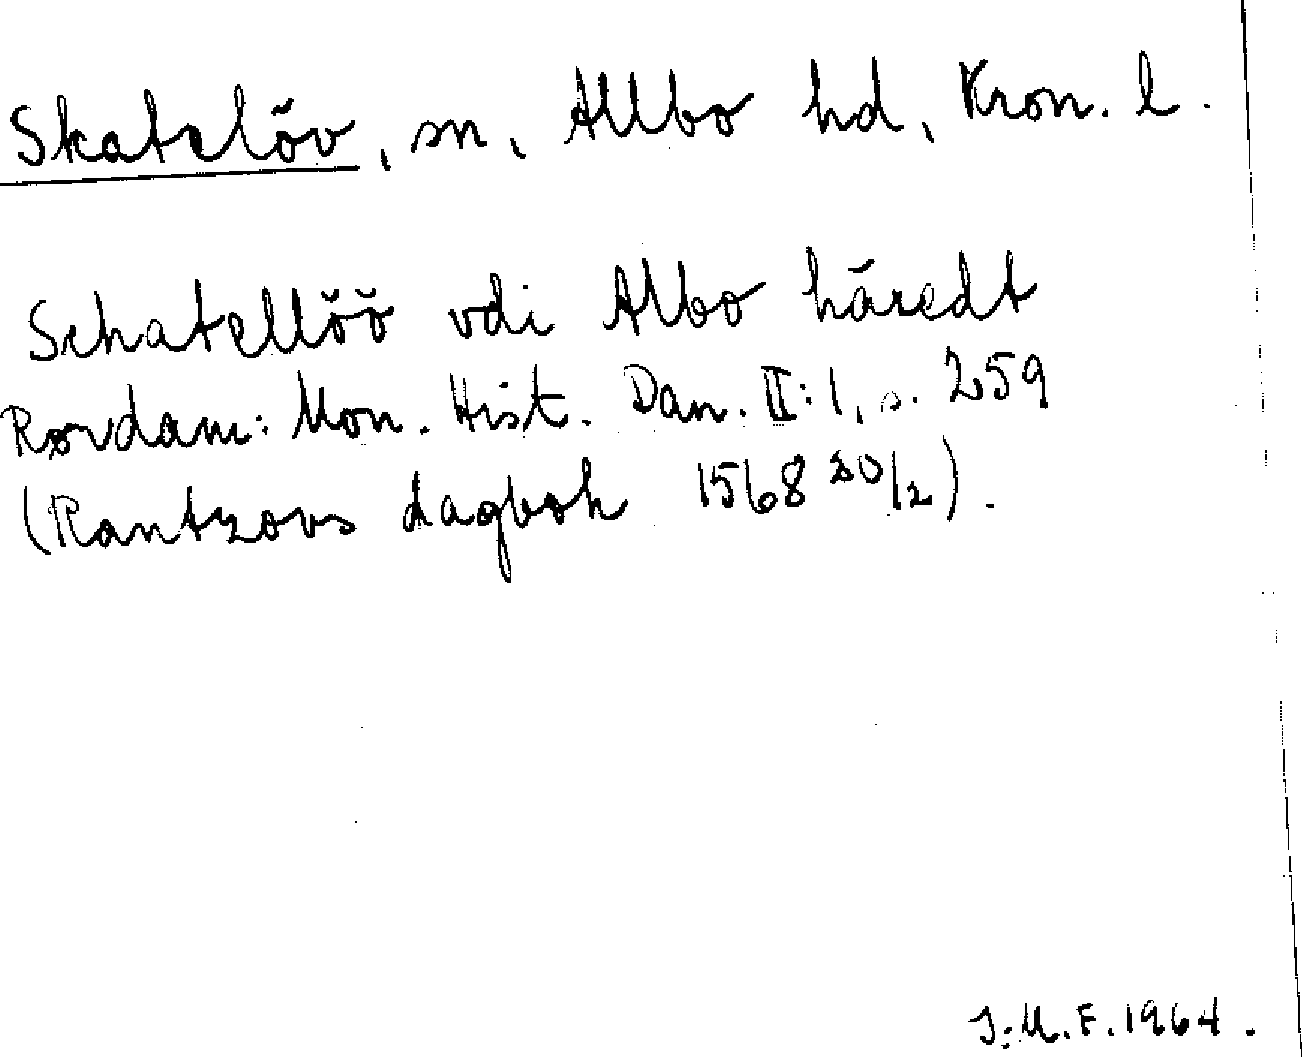 Skatelöv, sn, Allbo hd, Kron. l.
Schatellöö vdi Albo häredt
Rørdam: Mon. Hist. Dan. II:1, s. 259
(Rantzovs dagbok 1568 20/2).
J.M.F. 1964.